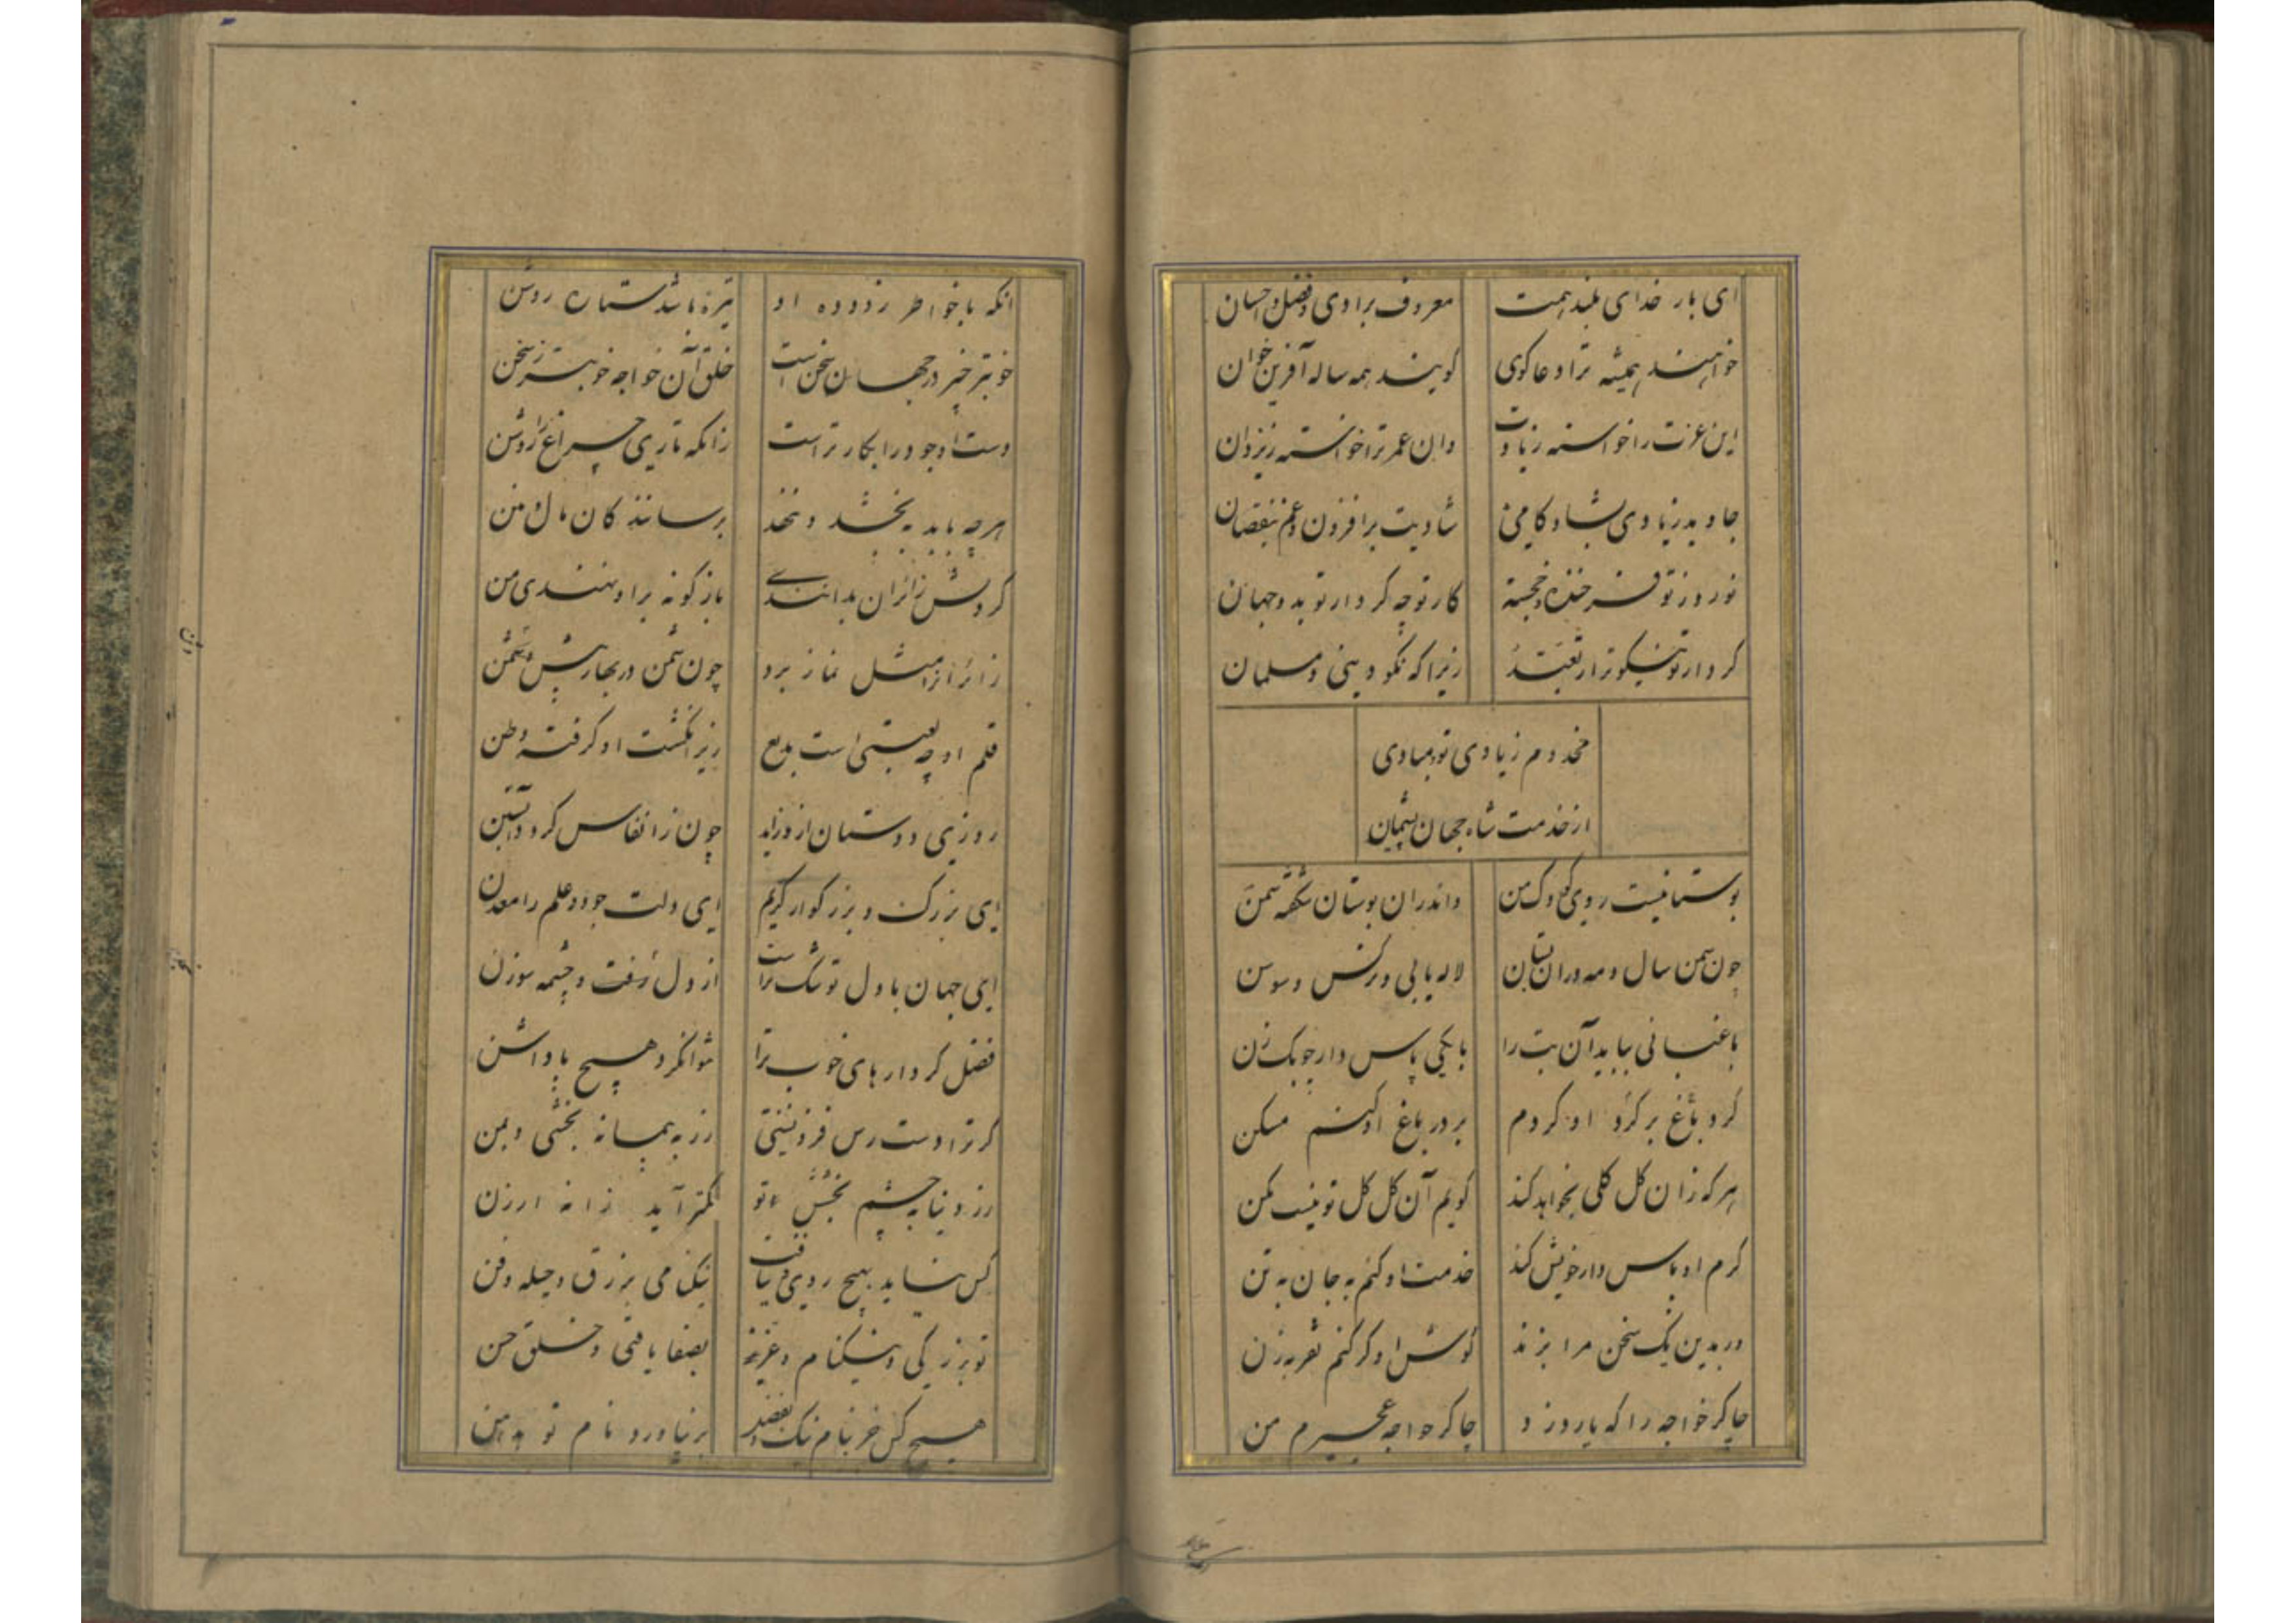 ای بار خدای بلند همت معروف برادی و فضل و احسان
خواهند همیشه ترا دعا کوی کویند همه ساله آفرین خوان
این عزت را خواسته زیادت وان عمر ترا خواسته زیزدان
جاوید زیادی بشاد کامی شادیت برافزون و غم بنقصان
نوروز تو فرخنده و خجسته کار تو چه کردار تو بد و جهان
کردار تو نیکوتر از تعبّد زیرا که نکو دینی و مسلمان
مخدوم زیادی تو و مبادی
از خدمت شاه جهان پشیمان
بوستانیست روی کودک من واندران بوستان شکفته سمن
چون سمن سال و مه دران بستان لاله یابی و نرکس و سوسن
باغبانی بباید آن بت را با یکی پاس دار چوبک زن
کرد باغ بر کرد او کردم بر در باغ او کنم مسکن
هر که زان کل کلی بخواهد کند کویم آن کل کل تو نیست مکن
کرم او پاس دار خویش کند خدمت او کنم به جان به تن
ور بدین یک سخن مرا بزند کوش او کر کنم بعربه زن
چاکر خواجه را که یارد زد چاکر خواجه عمیرم من
انکه با خواطر زدوده او تیره باشد ستاره روشن
خوبتر چیز در جهان سخن است خلق آن خواجه خوبتر ز سخن
دست او جود را بکار تر است زانکه تاریی چراغ را روشن
هر چه باید ببخشد و ننهد برساند کان مال و منن
کردش زائران بدانندی باز کونه براو نهندی من
زائرانرا مثل نماز برد چون شمن در بهار پیش وثن
قلم او چه لعبتی است بدیع زیر انکشت او کرفته وطن
روزیی دوستان ازو زاید چون ز انفاس کرد د آبستن
ای بزرک و بزرکوار کریم ای دلت جود و علم را معدن
ای جهان با دل تو تنک تر است از دل زفت و چشمه سوزن
فضل کردارهای خوب ترا نتوانکرد هیچ پاداشن
کر ترا دست رس فزونستی زر به پیمانه بخشی و بمن
زر و دنیا به چشم بخشش تو کمتر آید ز دانه ارزن
کس نشاید بهیچ روی و نیافت نیکنامی بزرق و حیله و فن
تو بزرکی و نیکنام و عزیز بصفا یافتی و خلق حسن
هیچ کس خر بنام نیک و بفضل بر نیاورد نام تو بدهن